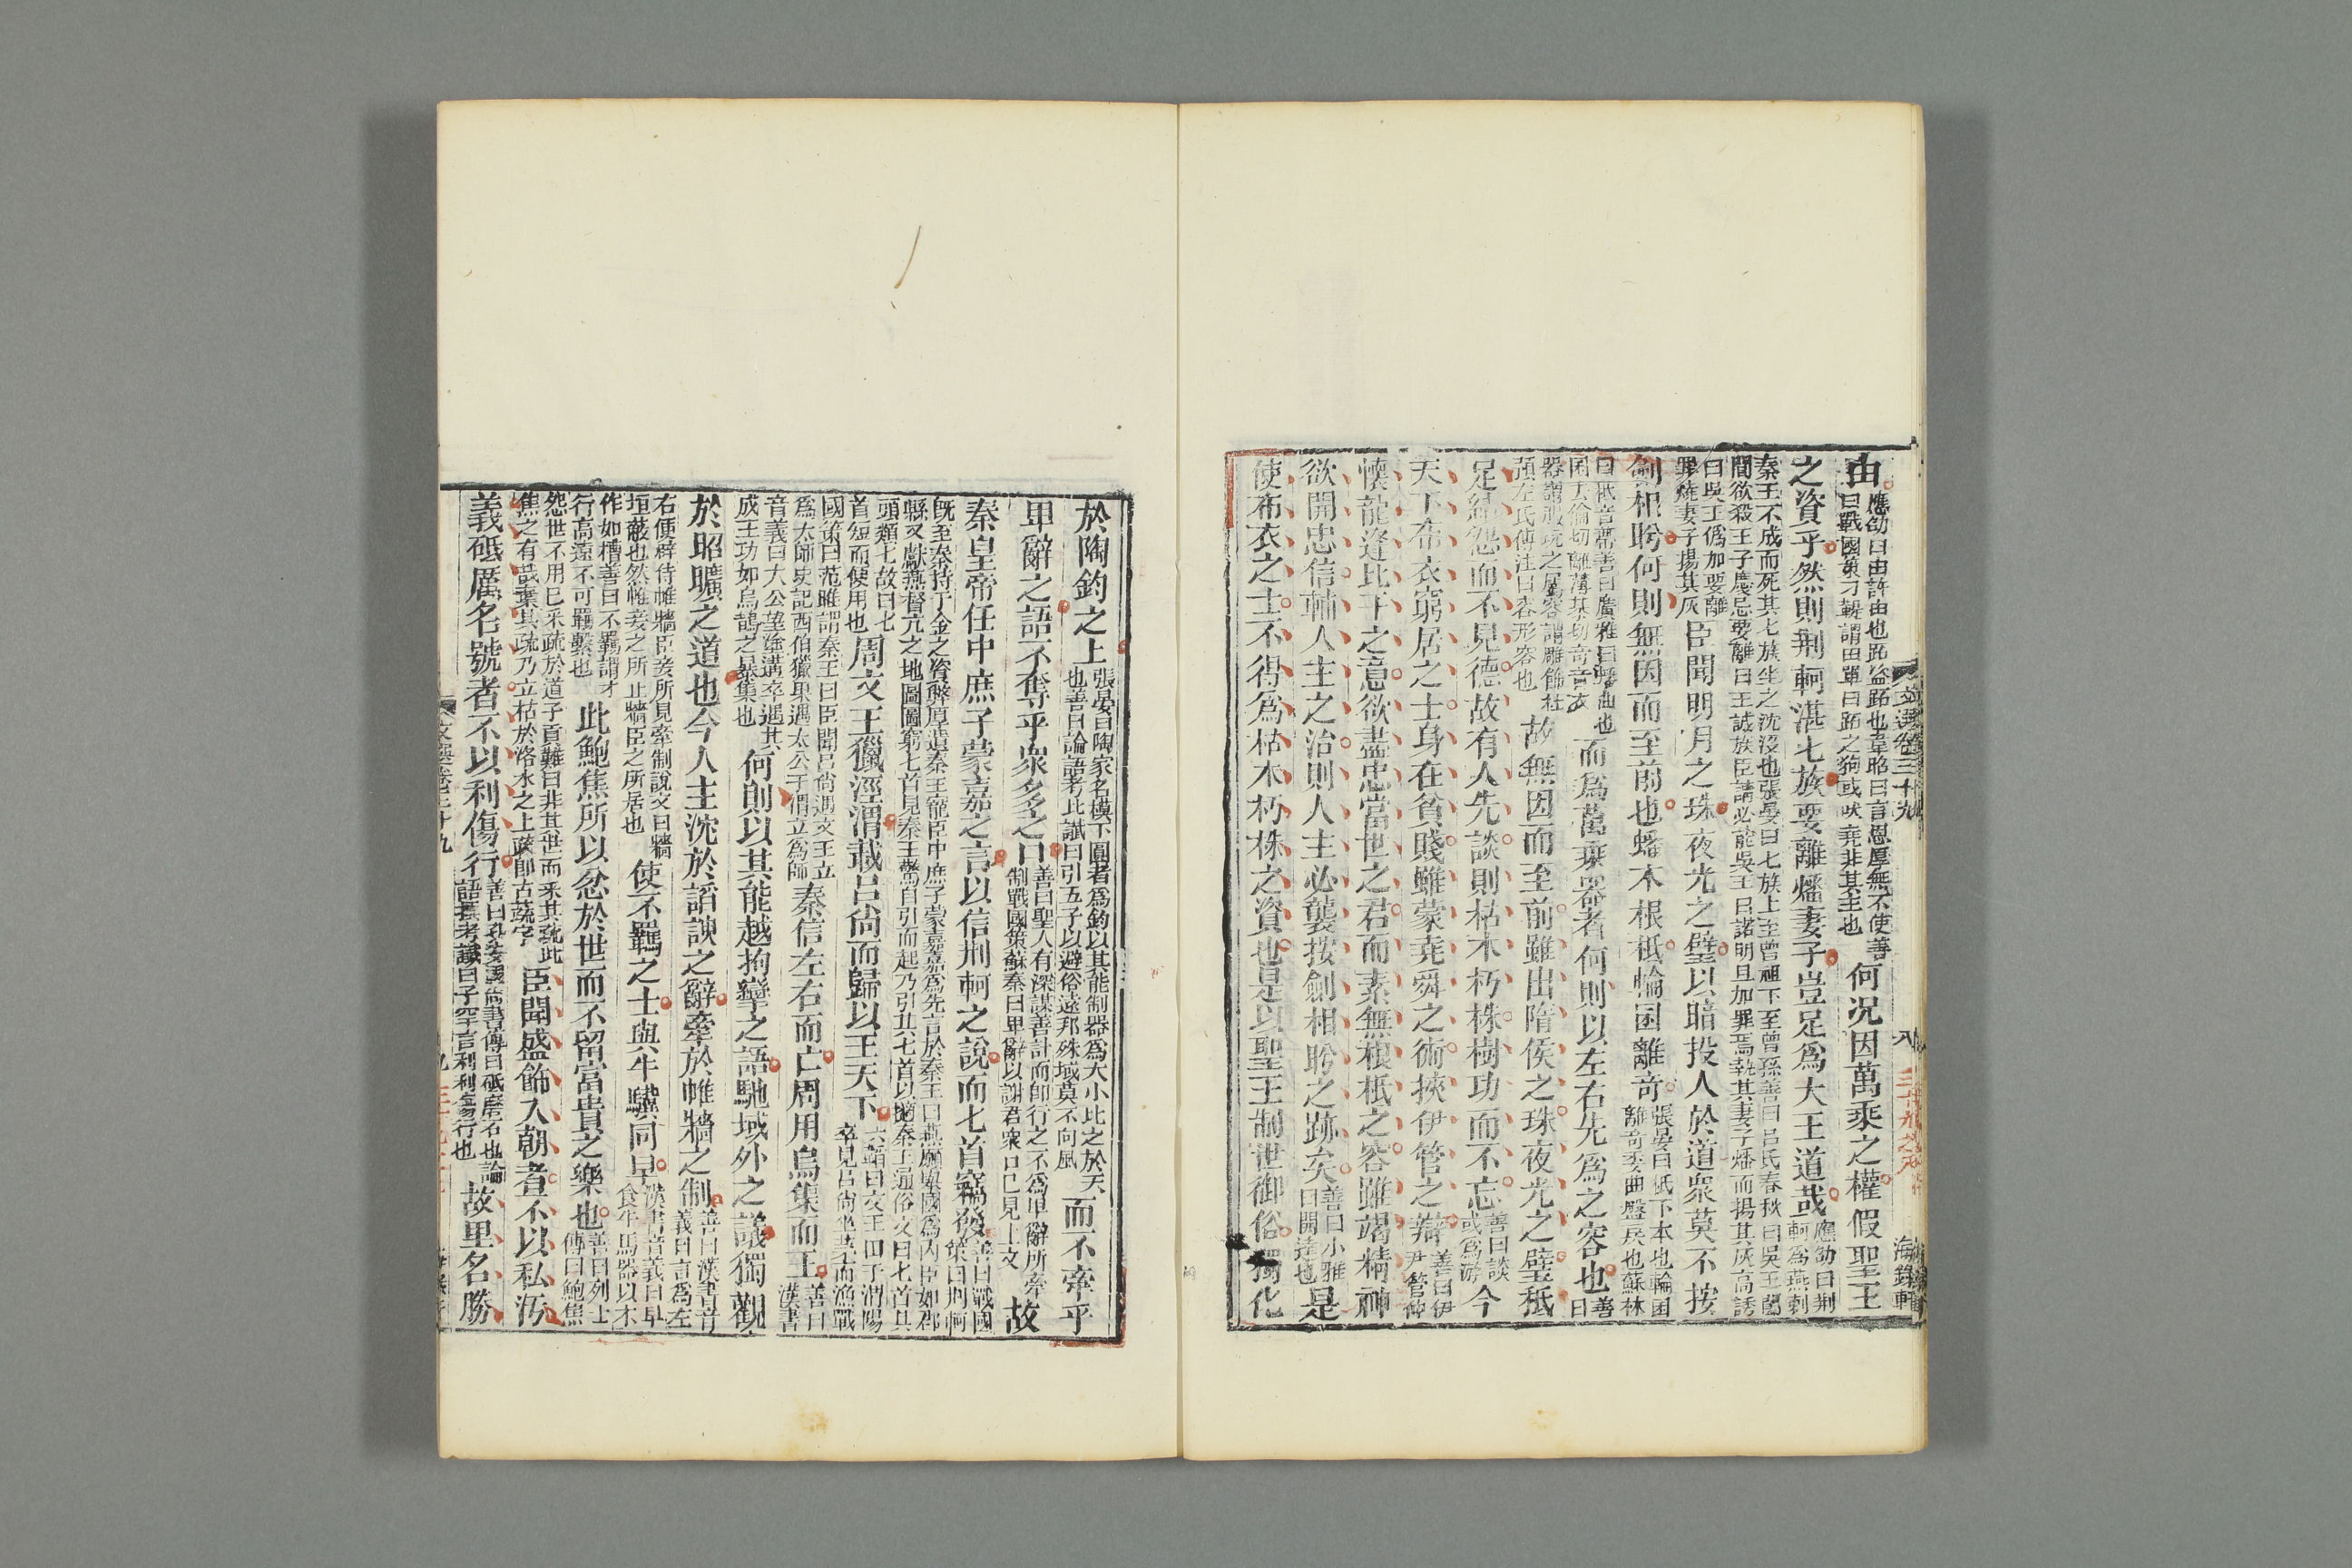 由應劭曰由許由也跖盜跖也韋昭曰言恩厚無不使善曰戰國策刁鞮謂田單曰跖之狗或吠堯非其主也何況因萬乘之權假聖王
之資乎然則荆軻湛七族要離燔妻子豈足爲大王道哉應劭曰荆軻爲燕刺
秦王不成而死其七族坐之沈沒也張晏曰七族上至曾祖下至曾孫善曰呂氏春秋曰吳王闔閭欲殺王子慶忌要離曰王誠族臣請必能吳王曰諾明旦加罪焉執其妻子燔而揚其灰高誘
曰吳王僞加要離罪燒妻子揚其灰臣聞明月之珠夜光之璧以暗投人於道衆莫不按
劍相眄何則無因而至前也蟠木根柢輪囷離奇張晏曰柢下本也輪囷離奇委曲盤戾也蘇林
曰柢音蔕善曰廣雅曰蟠曲也囷去倫切離薄基切奇音衣而爲萬乘器者何則以左右先爲之容也善曰
器謂服玩之屬容謂雕飾杜預左氏傳注曰容形容也故無因而至前雖出隋侯之珠夜光之璧秪
足結怨而不見德故有人先談則枯木朽株樹功而不忘善曰談或爲游今
天下布衣窮居之士身在貧賤雖蒙堯舜之術挾伊管之辯善曰伊尹管仲
懷龍逄比干之意欲盡忠當世之君而素無根柢之容雖竭精神
欲開忠信輔人主之治則人主必襲按劍相眄之跡矣善曰小雅曰開達也是
使布衣之士不得爲枯木朽株之資也是以聖王制世御俗獨化
文選卷三十九
八
海錄軒
於陶鈞之上張晏曰陶家名模下圓者爲鈞以其能制器爲大小比之於天也善曰論語考比讖曰引五子以避俗遠邦殊域莫不向風而不牽乎
卑辭之語不奪乎衆多之口善曰聖人有深謀善計而卽行之不爲卑辭所牽制戰國策蘇秦曰卑辭以謝君衆口已見上文故
秦皇帝任中庶子蒙嘉之言以信荆軻之說而匕首竊發善曰戰國策曰荆軻
旣至秦持千金之資幣厚遺秦王寵臣中庶子蒙嘉嘉爲先言於秦王曰燕願舉國爲內臣如郡縣又獻燕督亢之地圖圖窮匕首見秦王驚自引而起乃引其匕首以擿秦王通俗文曰匕首其
頭類匕故曰匕首短而便用也周文王獵涇渭載呂尙而歸以王天下六韜曰文王田于渭陽卒見呂尙坐茅而漁戰
國策曰范雎謂秦王曰臣聞呂尙遇文王立爲太師史記西伯獵果遇太公于渭立爲師秦信左右而亡周用烏集而王善曰漢書
音義曰太公望塗遘卒遇其成王功如烏鵲之暴集也何則以其能越拘攣之語馳域外之議獨觀
於昭曠之道也今人主沈於諂諛之辭牽於帷牆之制善曰漢書音義曰言爲左
右便辟侍帷牆臣妾所見牽制說文曰牆垣蔽也然帷妾之所止牆臣之所居也使不羈之士與牛驥同皁漢書音義曰皁食牛馬器以木
作如槽善曰不羈謂才行高遠不可羈繫也此鮑焦所以忿於世而不留富貴之樂也善曰列士傳曰鮑焦
怨世不用己采疏於道子貢難曰非其世而采其疏此焦之有哉棄其疏乃立枯於洛水之上疏卽古蔬字臣聞盛飾入朝者不以私汚
義砥厲名號者不以利傷行善曰孔安國尙書傳曰砥磨石也論語撰考讖曰子罕言利利傷行也故里名勝
文選卷三十九
九